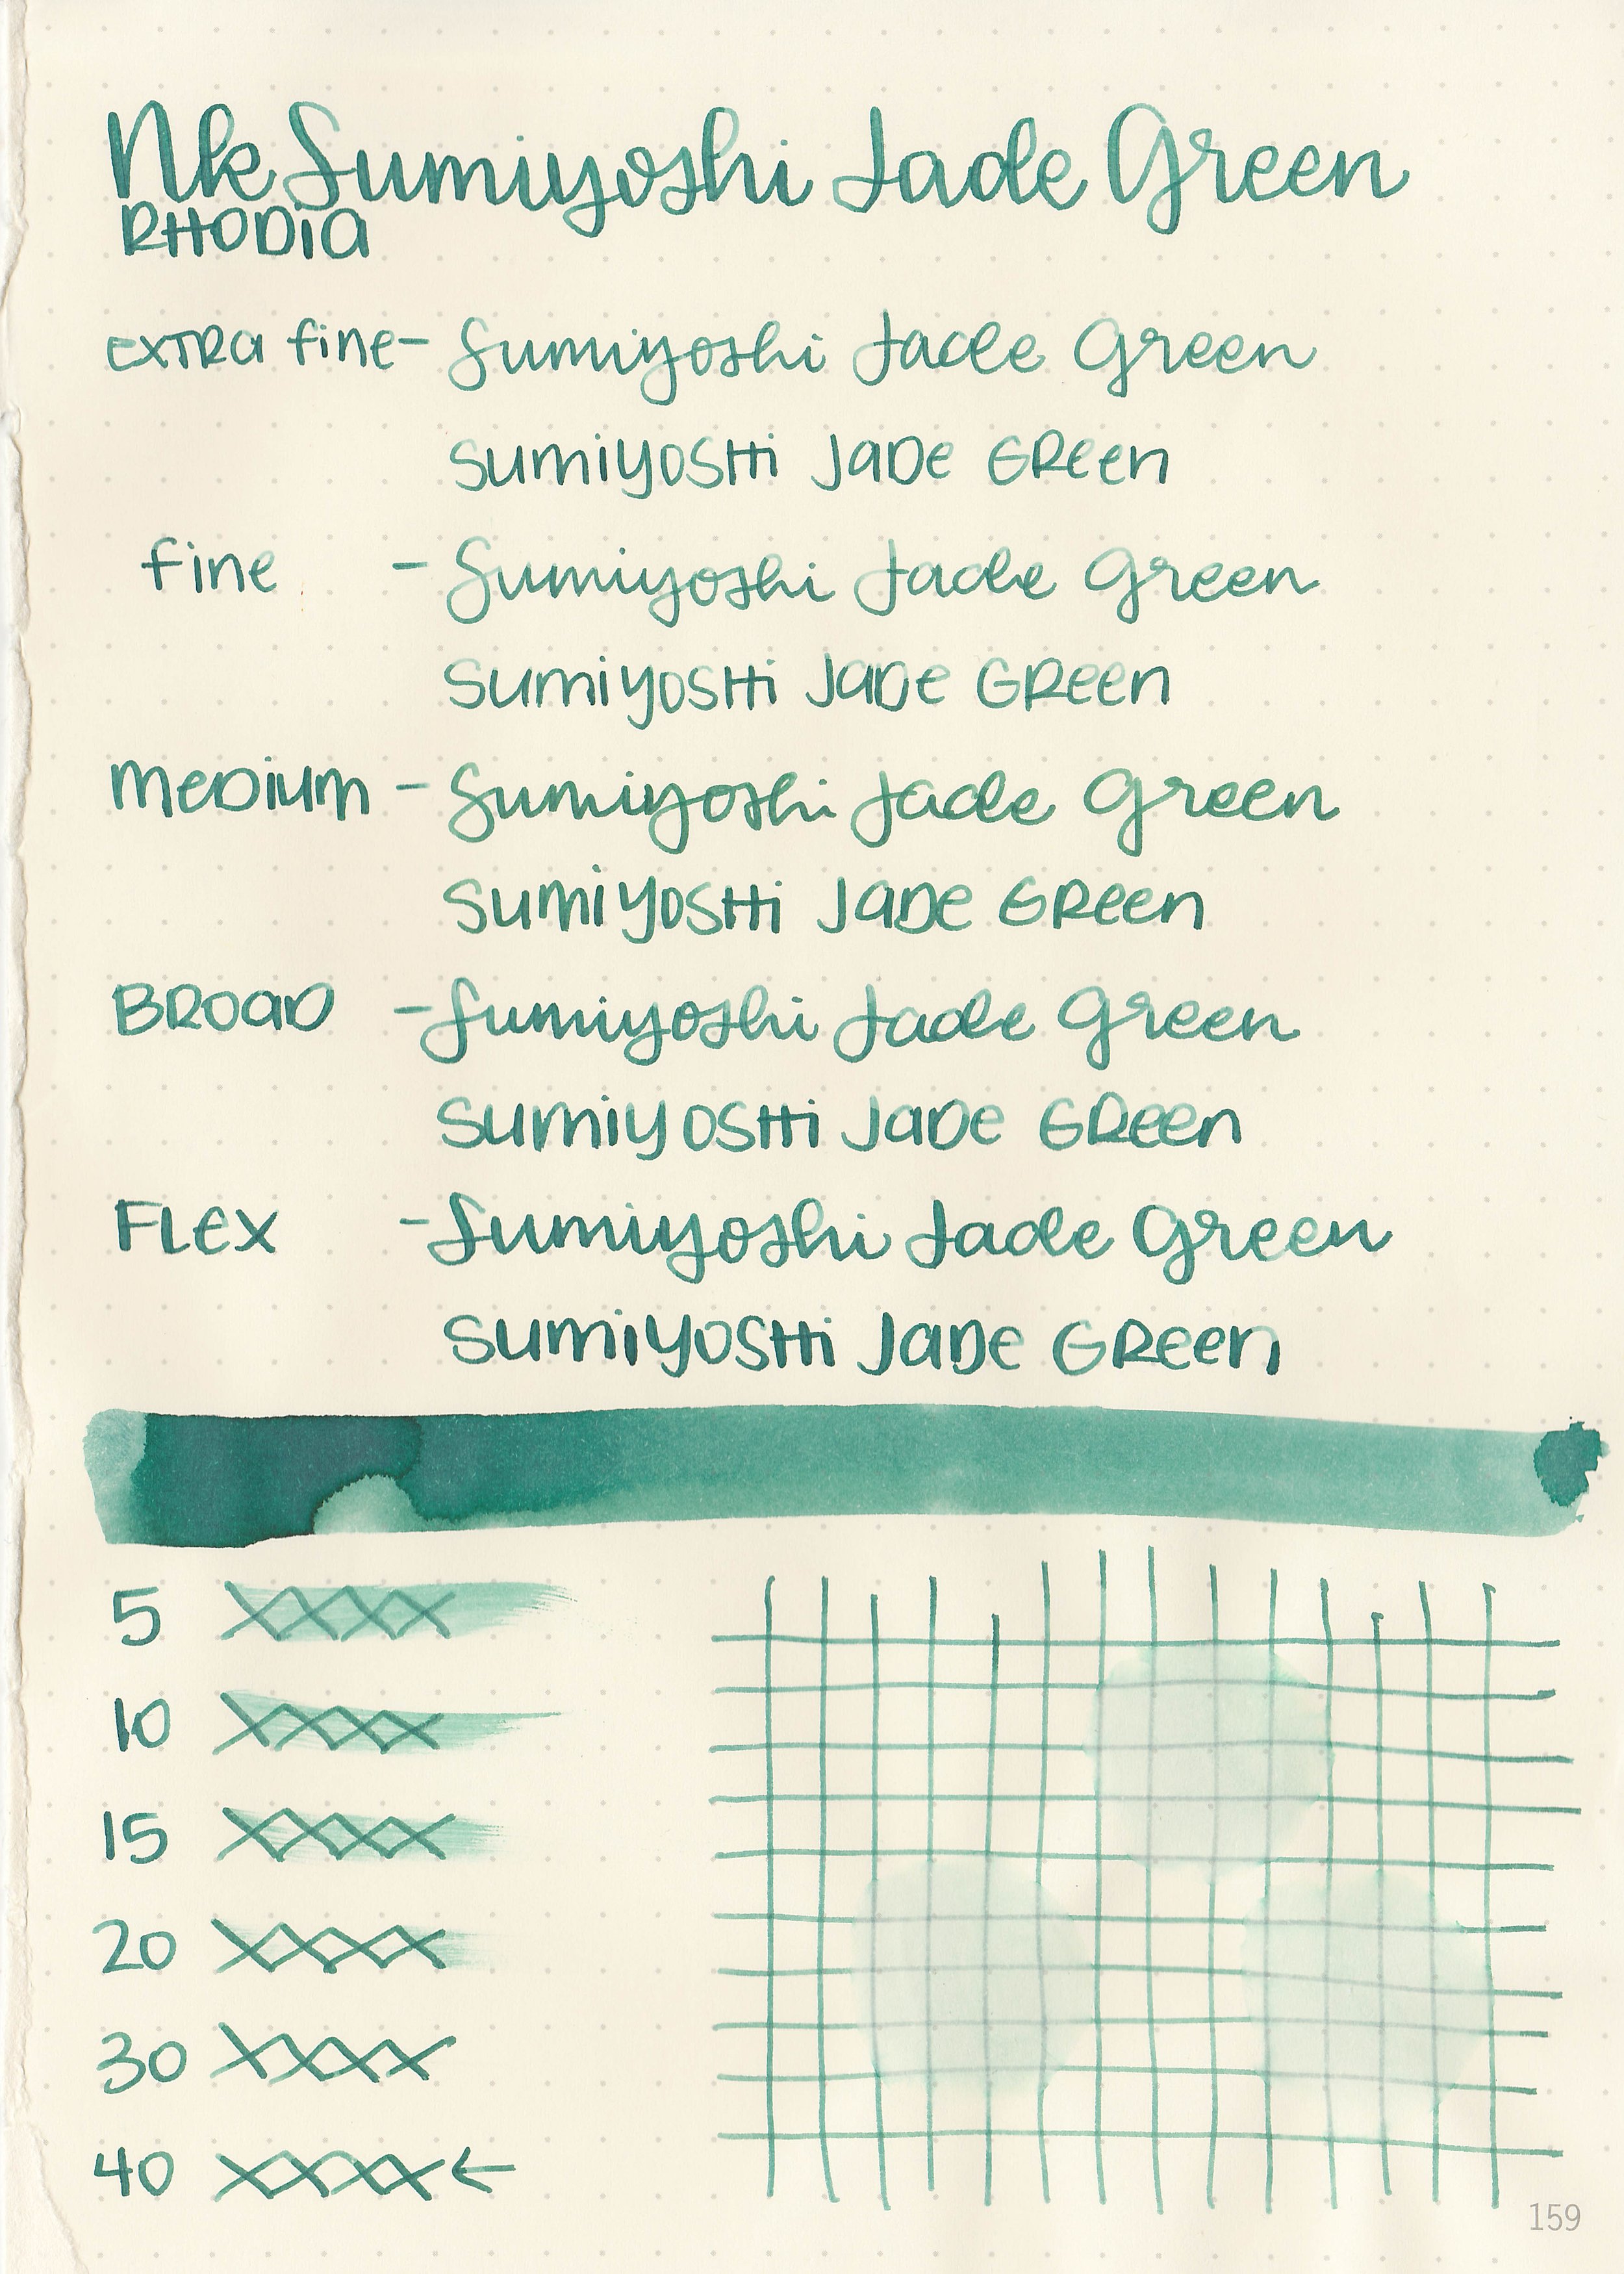 Nk Sumiyoshi Jade Green
RHODIA
EXTRA fine - Sumiyoshi Jade Green
SUMIYOSHI JADE GREEN
fine - Sumiyoshi Jade Green
SUMIYOSHI JADE GREEN
MEDIUM - Sumiyoshi Jade Green
SUMIYOSHI JADE GREEN
BROAD - Sumiyoshi Jade Green
SUMIYOSHI JADE GREEN
FLEX - Sumiyoshi Jade Green
SUMIYOSHI JADE GREEN
5 XXXX
10 XXXX
15 XXXX
20 XXXX
30 XXXX
40 XXXX ←
159